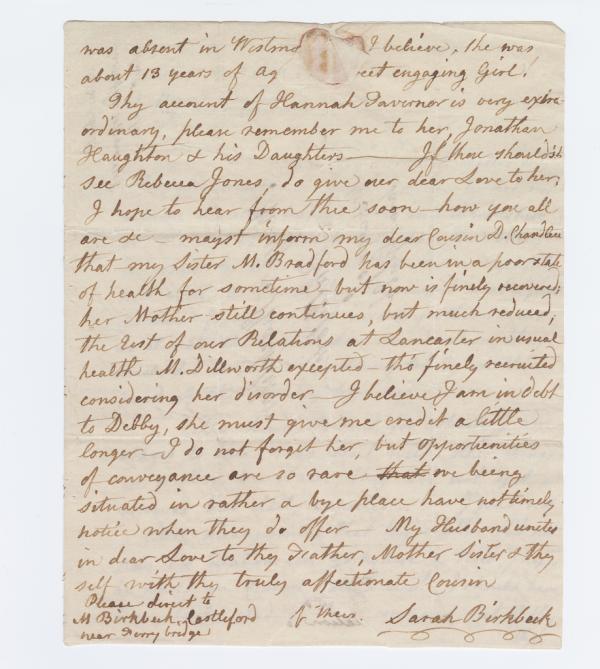 was absent in Westmo I believe, she was
about 13 years of ag eet engaging Girl!
Thy account of Hannah Tavernor is very extra-
ordinary, please remember me to her, Jonathan
Haughton & his Daughters — If thou should'st
see Rebecca Jones, do give our dear Love to her;
I hope to hear from thee soon — how you all
are &c — mayst inform my dear Cousin D. Chandlee
that my Sister M. Bradford has been in a poor state
of health for sometime — but now is finely recovered;
her Mother still continues, but much reduced,
the rest of our Relations at Lancaster in usual
health M. Dillworth excepted — tho' finely recruited
considering her disorder — I believe I am in debt
to Debby, she must give me credit a little
longer — I do not forget her, but opportunities
of conveyance are so rare that we being
situated in rather a bye place have not timely
notice when they do offer — My Husband unites
in dear Love to thy Father, Mother Sister & thy
self with thy truly affectionate Cousin
Sarah Birkbeck
Please direct to
M Birkbeck, Castleford
near Ferrybridge